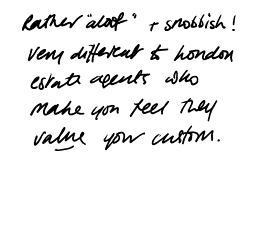 Rather "aloof" + snobbish!
very different to London
estate agents who
make you feel they
value your custom.